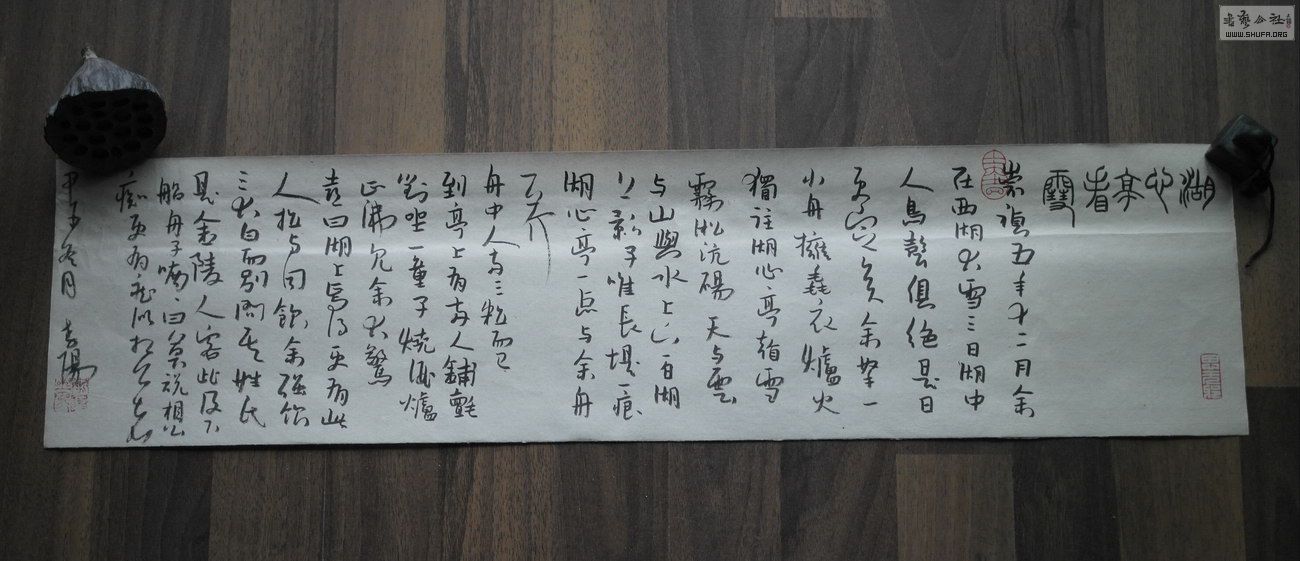 湖心亭看
雪
崇祯五年十二月余
在西湖大雪三日湖中
人鳥聲俱绝是日
更定矣余拏一
小舟擁毳衣爐火
獨往湖心亭看雪
霧凇沆碭天与雲
与山與水上下一白湖
上影子唯長堤一痕
湖心亭一点与余舟
一芥
舟中人两三粒而已
到亭上有两人鋪氈
對坐一童子燒酒爐
正沸見余大驚
喜曰湖上焉得更有此
人拉与同飲余强飲
三大白而别問其姓氏
是金陵人客此及下
船舟子喃々曰莫说相公
癡更有癡似相公者
甲午冬月
書藝公社
WWW.SHUFA.ORG